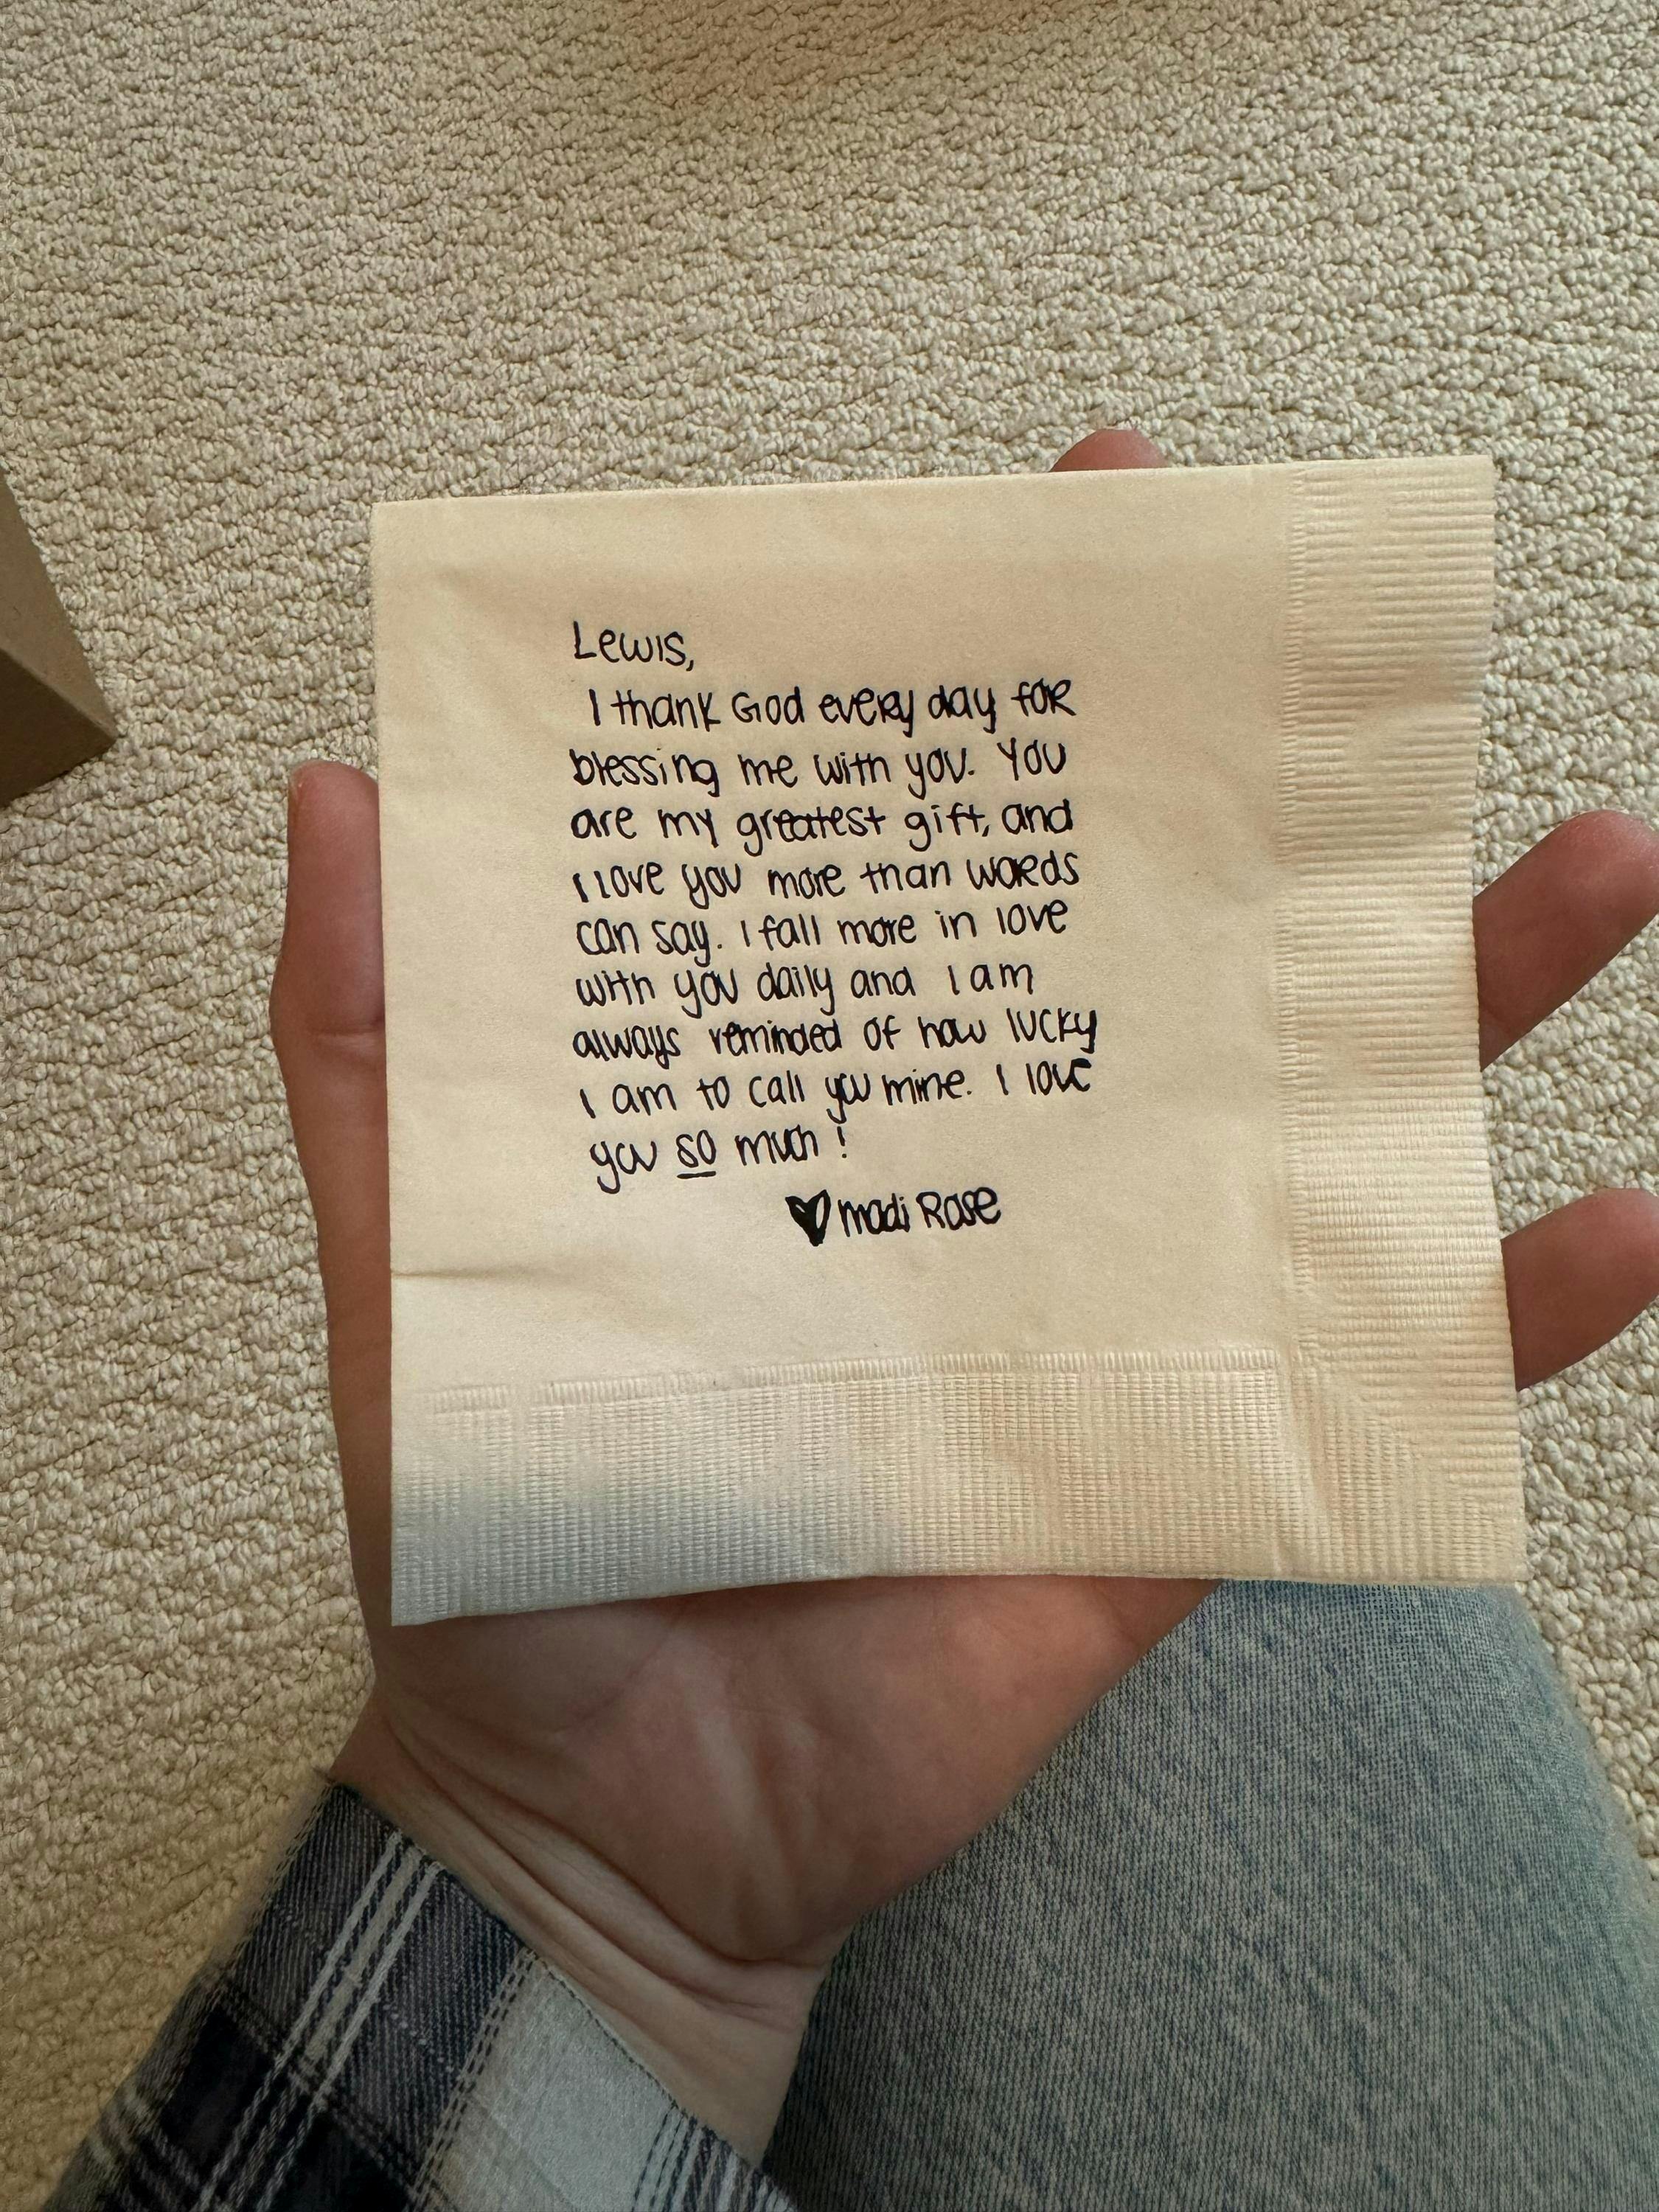 Lewis,
I thank God every day for
blessing me with you. You
are my greatest gift, and
I love you more than words
can say. I fall more in love
with you daily and I am
always reminded of how lucky
I am to call you mine. I love
you so much!
♥ Madi Rose